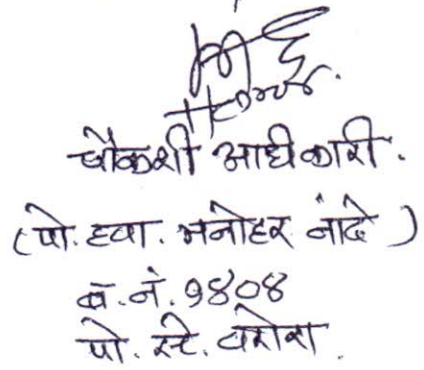 चौकशी अधिकारी.
(पो. हवा. मनोहर नांदे)
ब. नं. १४०४
पो. स्टे. वरोरा.